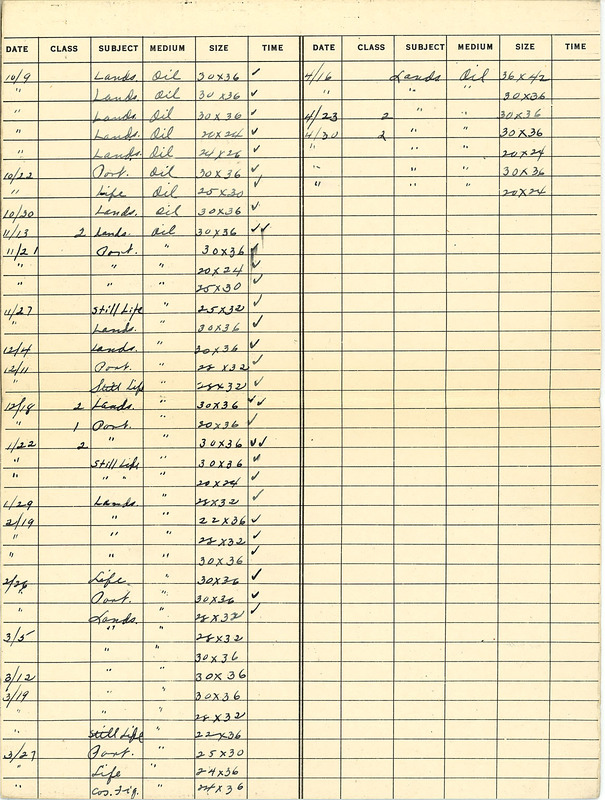 DATE CLASS SUBJECT MEDIUM SIZE TIME DATE CLASS SUBJECT MEDIUM SIZE TIME
10/9 Lands. Oil 30x36 ✓
" Lands. Oil 30x36 ✓
" Lands. Oil 30x36 ✓
" Lands. Oil 20x24 ✓
" Lands. Oil ✓
10/22 Port. Oil 30x36 ✓
" Life Oil 25x30 ✓
10/30 Lands. Oil 30x36 ✓
11/13 2 Lands. Oil 30x36 ✓✓
11/21 Port. " 30x36 ✓
" " " 20x24 ✓
" " " 25x30 ✓
11/27 Still Life " 25x32 ✓
" Lands. " 30x36 ✓
12/4 Lands. " 30x36 ✓
12/11 Port. " 28x32 ✓
" Still Life " 28x32 ✓
12/18 2 Lands. " 30x36 ✓✓
" 1 Port. " 20x36 ✓
1/22 2 " " 30x36 ✓✓
" Still Life " 30x36 ✓
" " " " 20x24 ✓
1/29 Lands. " 28x32 ✓
2/19 " " 22x36 ✓
" " " 28x32 ✓
" " " 30x36 ✓
2/26 Life. " 30x36 ✓
" Port. " 30x36 ✓
" Lands. " 28x32 ✓
3/5 " " 28x32
" " 30x36
3/12 " " 30x36
3/19 " " 30x36
" " " 28x32
" Still Life " 22x36
3/27 Port. " 25x30
" Life " 24x36
" Cos. Fig. " 24x36
4/16 Lands Oil 36x42
" " " 30x36
4/23 2 " " 30x36
4/30 2 " " 30x36
" 20x24
" " 30x36
" " 20x24